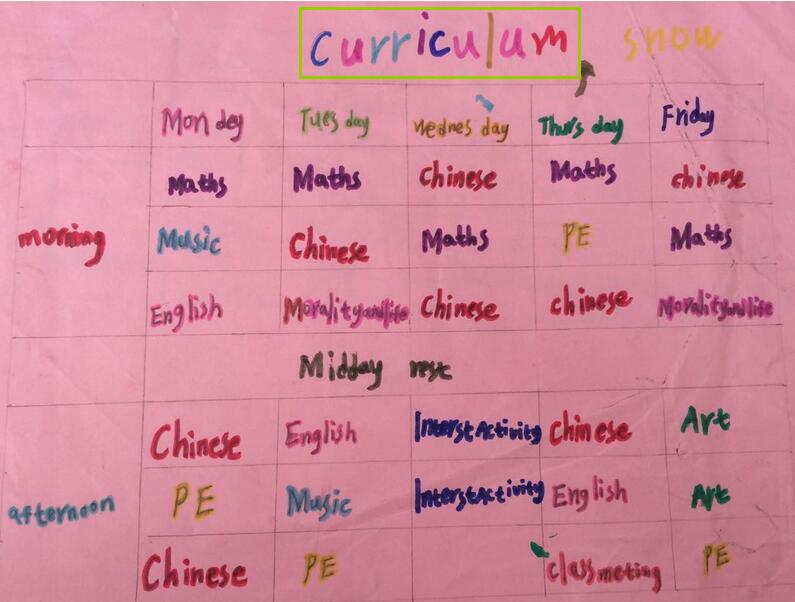 Curriculum snow
Mondey Tuesday Wednesday Thursday Friday
Maths Maths Chinese Maths chinese
morning Music Chinese Maths PE Maths
English Moralityandlife Chinese chinese Moralityandlife
Midday rest
Chinese English InterstActivity Chinese Art
afternoon PE Music InterstActivity English Art
Chinese PE classmeting PE